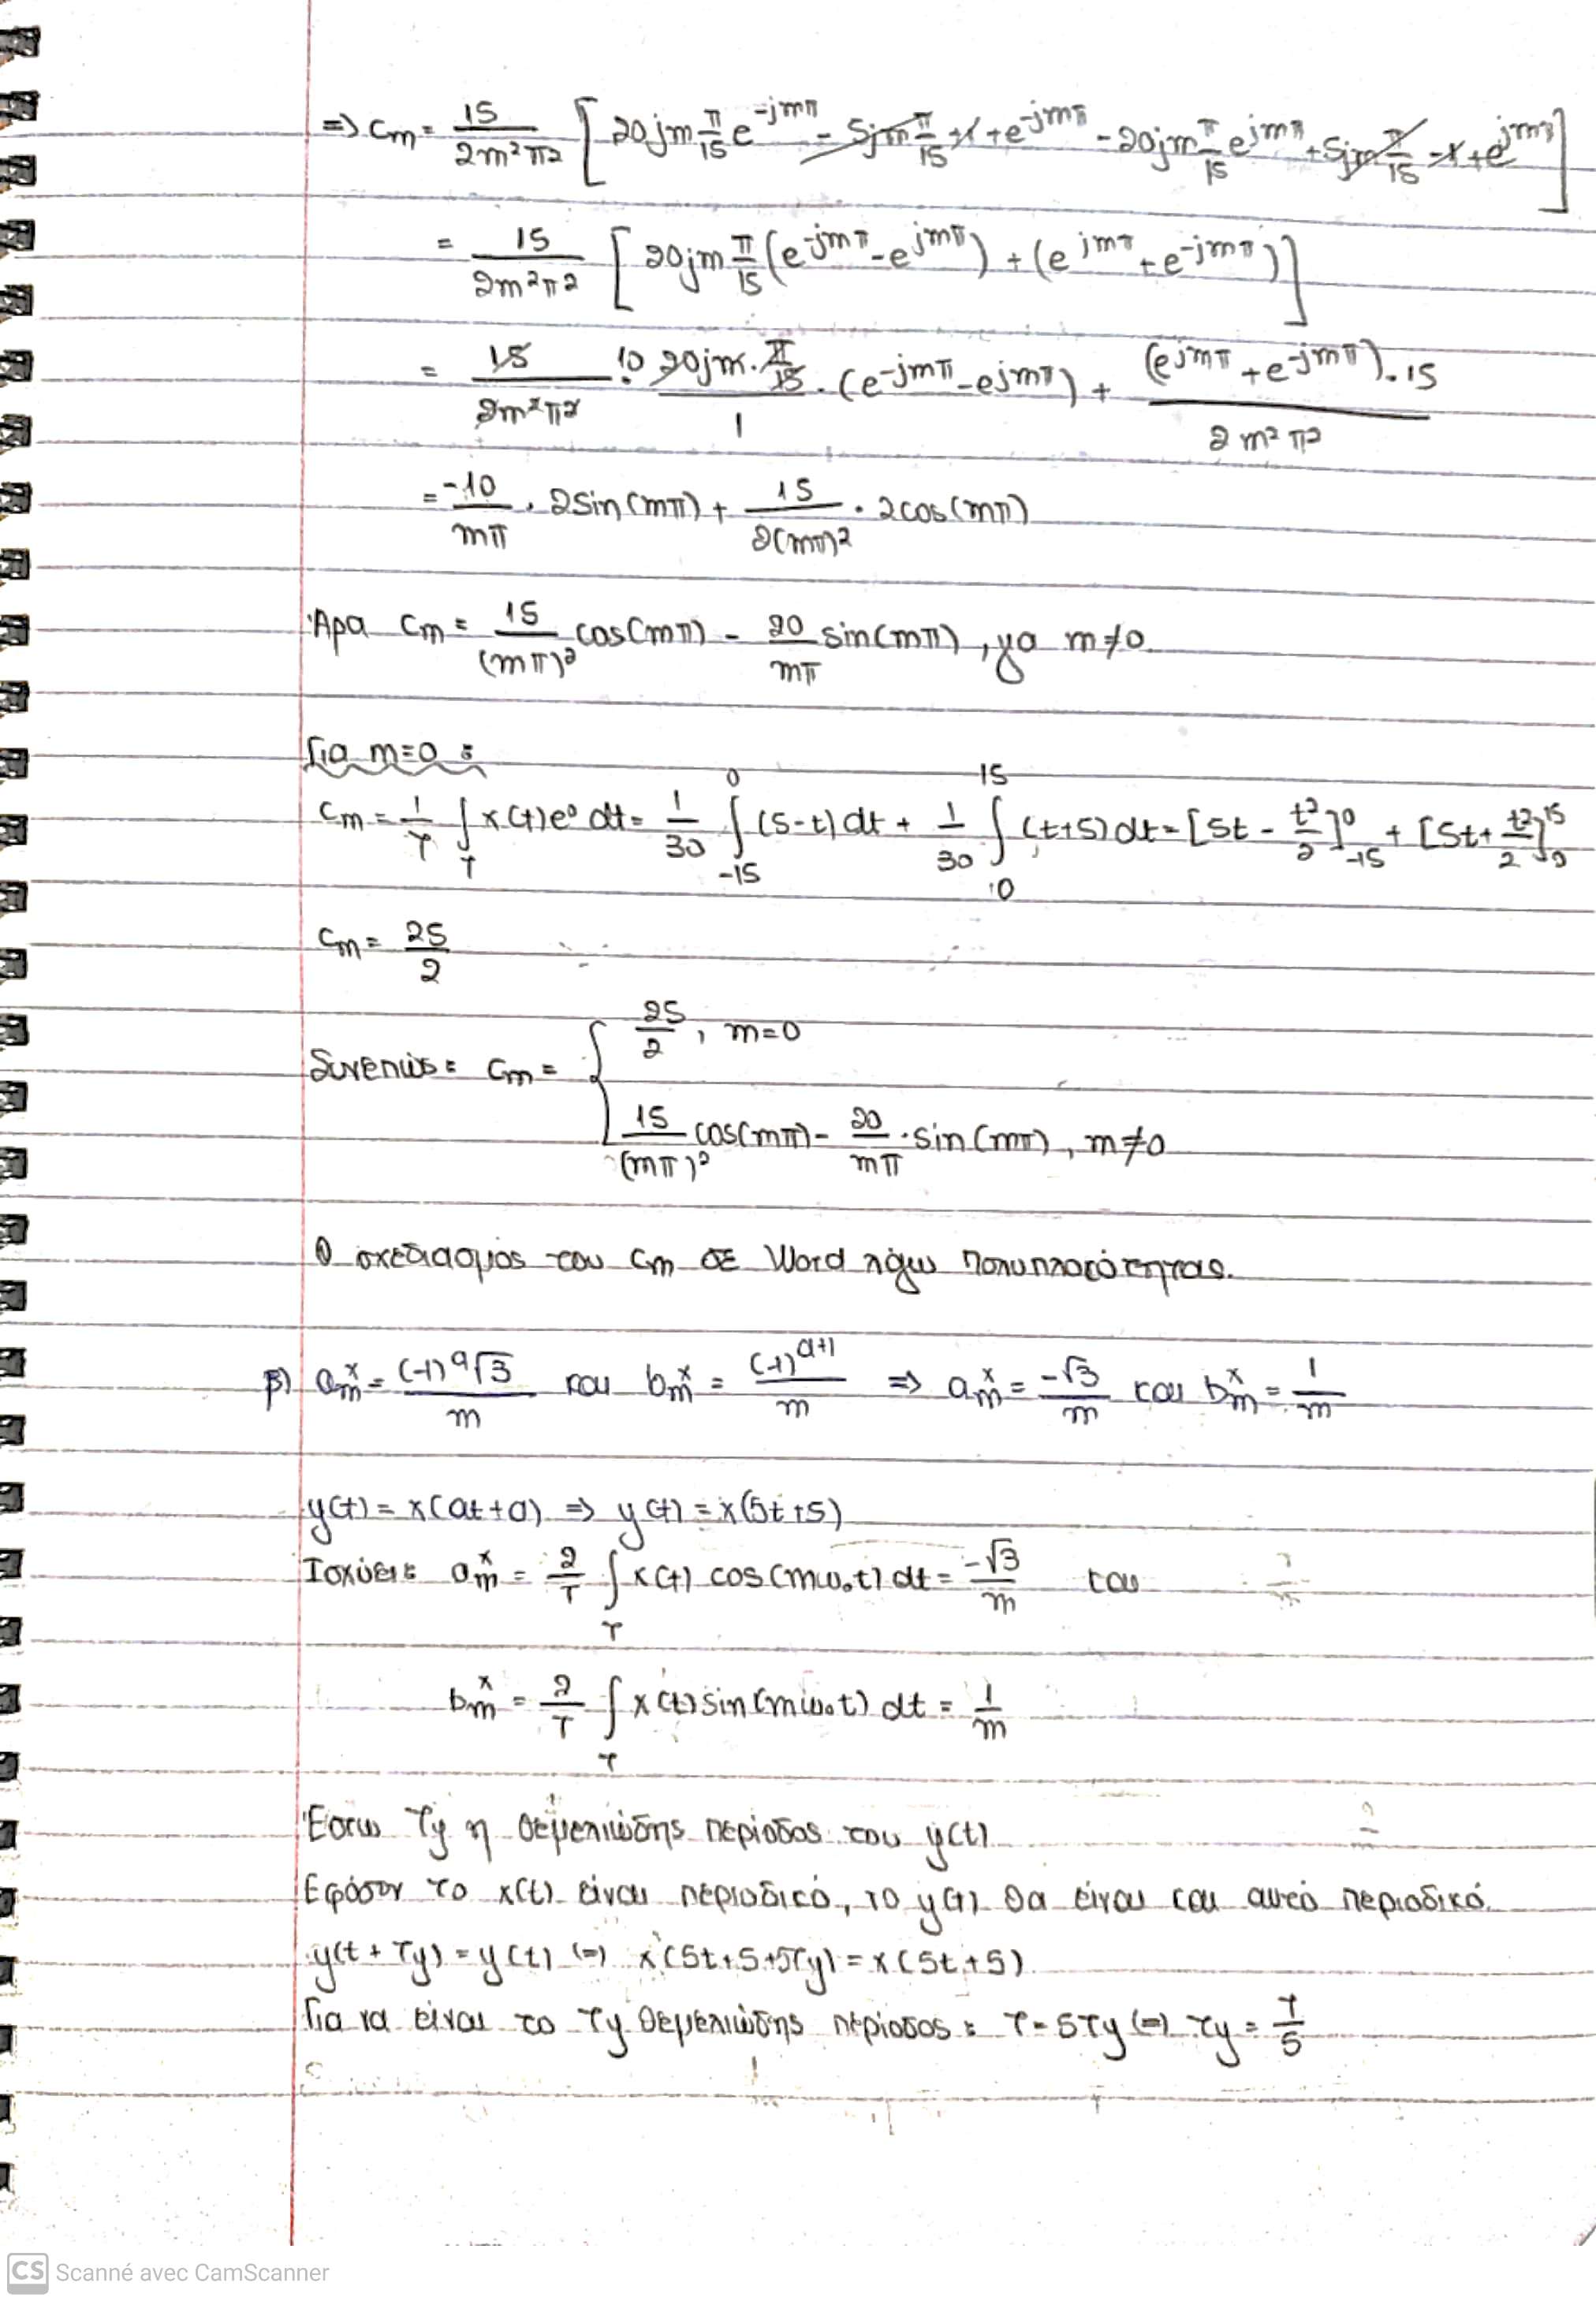 => cm = 15/2m²π² [20jm π/15 e^-jmπ - 5jm π/15 -1 + e^-jmπ - 20jm π/15 e^jmπ + 5jm π/15 -1 + e^jmπ]
= 15/2m²π² [20jm π/15 (e^-jmπ - e^jmπ) + (e^jmπ + e^-jmπ)]
= 15/2m²π² · 10 20jm·π/15 /1 · (e^-jmπ - e^jmπ) + (e^jmπ + e^-jmπ)·15 / 2m²π²
= -10/mπ · 2sin(mπ) + 15/2(mπ)² · 2cos(mπ)
Άρα cm = 15/(mπ)² cos(mπ) - 20/mπ sin(mπ), για m≠0
Για m=0 :
cm = 1/T ∫_T x(t)e⁰ dt = 1/30 ∫_-15^0 (5-t)dt + 1/30 ∫_0^15 (t+5)dt = [5t - t²/2]_-15^0 + [5t + t²/2]_0^15
cm = 25/2
Συνεπώς: cm = { 25/2, m=0
15/(mπ)² cos(mπ) - 20/mπ · sin(mπ), m≠0
Ο σχεδιασμός του cm σε Word λόγω πολυπλοκότητας.
β) a_m^x = (-1)^a √3/m και b_m^x = (-1)^a+1/m => a_m^x = -√3/m και b_m^x = 1/m
y(t) = x(at+a) => y(t) = x(5t+5)
Ισχύει: a_m^x = 2/T ∫_T x(t) cos(mω₀t) dt = -√3/m και
b_m^x = 2/T ∫_T x(t) sin(mω₀t) dt = 1/m
Έστω Ty η θεμελιώδης περίοδος του y(t)
Εφόσον το x(t) είναι περιοδικό, το y(t) θα είναι και αυτό περιοδικό.
y(t+Ty) = y(t) (=) x(5t+5+5Ty) = x(5t+5)
Για να είναι το Ty θεμελιώδης περίοδος : T=5Ty (=) Ty = T/5
CS Scanné avec CamScanner